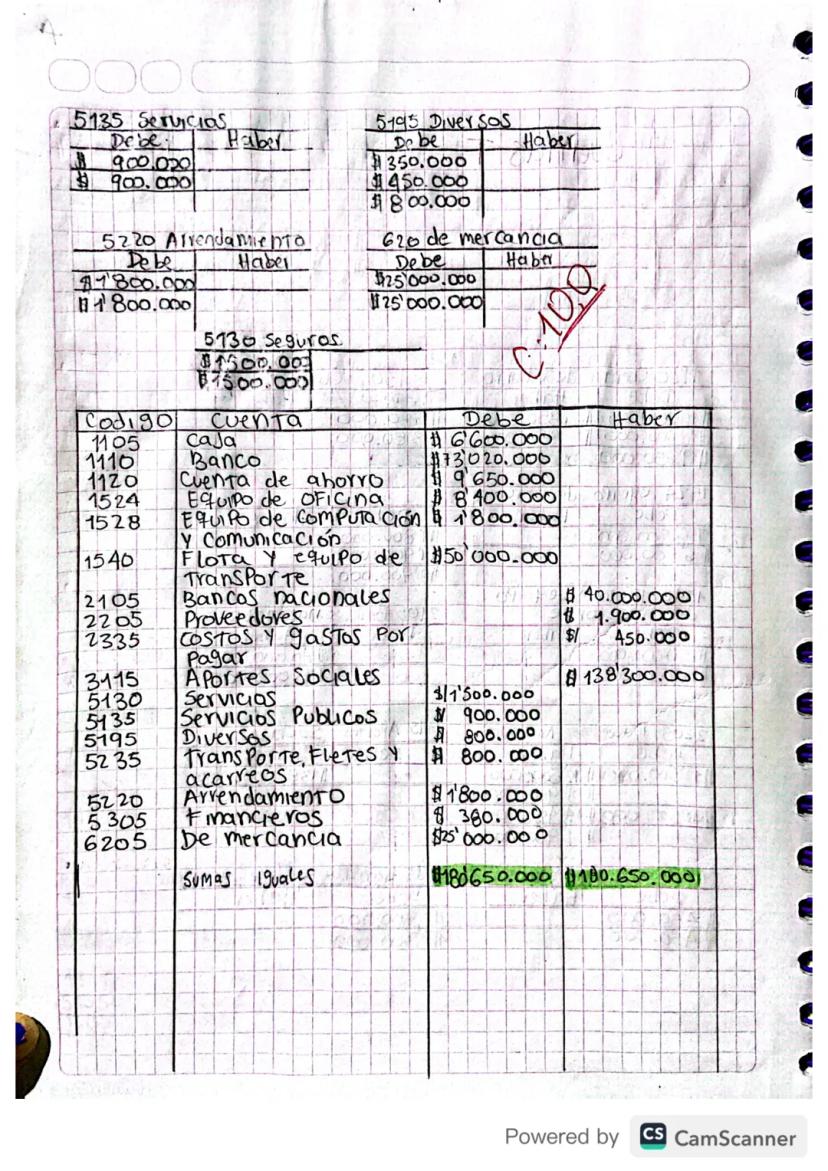 5135 Servicios
Debe Haber
$ 900.000
$ 900.000
5195 Diversos
Debe Haber
$ 350.000
$ 450.000
$ 800.000
5220 Arrendamiento
Debe Haber
$ 1'800.000
$ 1'800.000
620 de mercancia
Debe Haber
$25'000.000
$25'000.000
5130 Seguros
$1500.000
$1500.000
C.10,0
Codigo Cuenta Debe Haber
1105 Caja $ 6'600.000
1110 Banco $73'020.000
1120 Cuenta de ahorro $ 9'650.000
1524 Equipo de oficina $ 8'400.000
1528 Equipo de computación $ 1'800.000
y comunicación
1540 Flota y equipo de $50'000.000
Transporte
2105 Bancos nacionales $ 40.000.000
2205 Proveedores $ 1.900.000
2335 costos y gastos por $/ 450.000
pagar
3115 Aportes Sociales $ 138'300.000
5130 Servicios $/1'500.000
5135 Servicios Publicos $ 900.000
5195 Diversos $ 800.000
5235 Transporte, Fletes y $ 800.000
acarreos
5220 Arrendamiento $ 1'800.000
5305 Financieros $ 380.000
6205 De mercancia $25'000.000
sumas iguales $180'650.000 $180.650.000
Powered by CS CamScanner